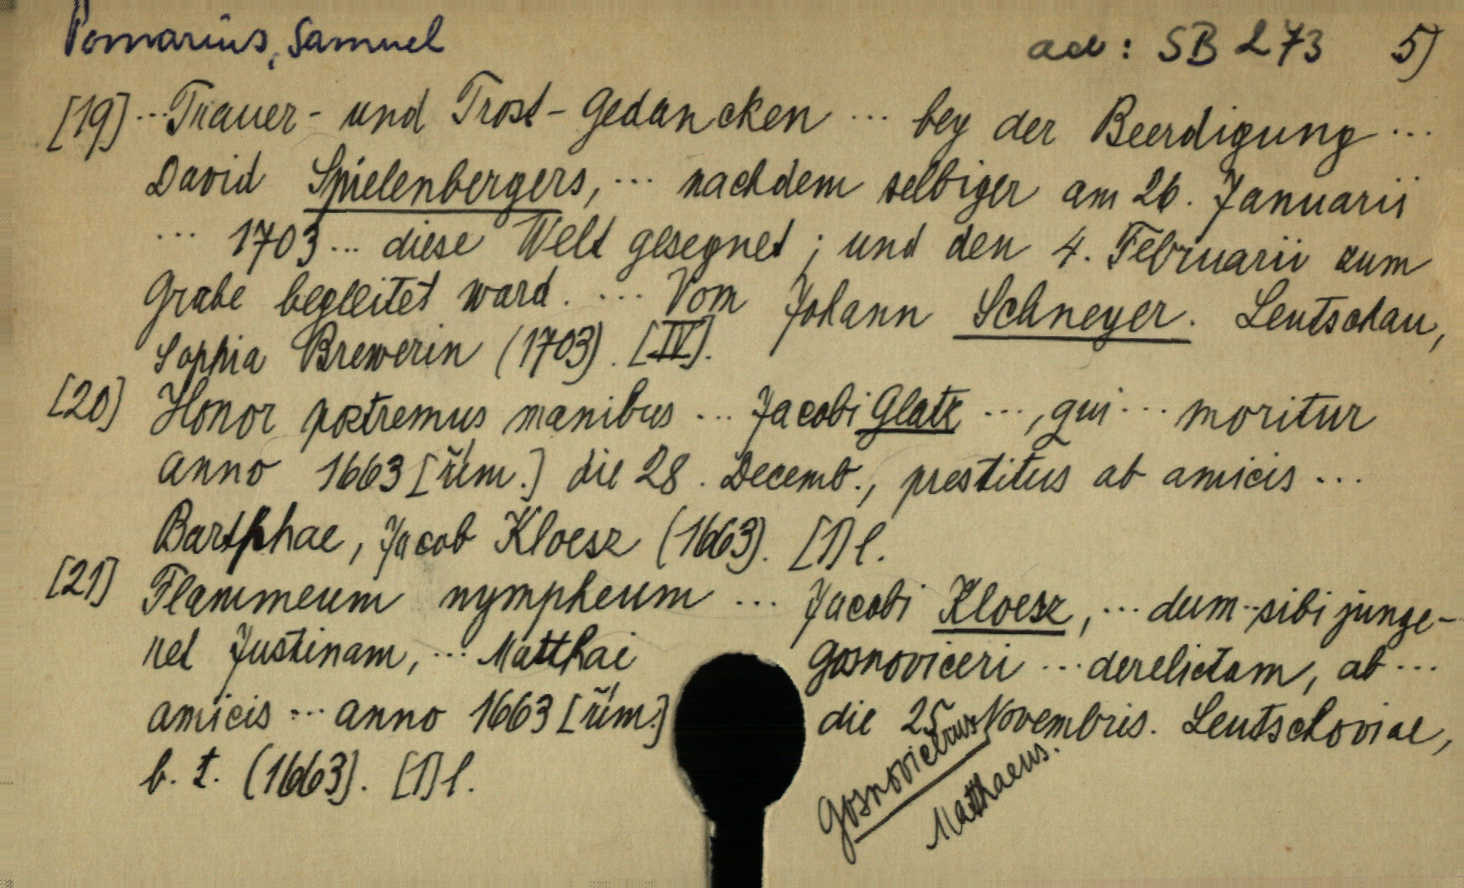 Pomarius, Samuel ad: SB 273 5)
[19] ... Trauer- und Trost-Gedancken ... bey der Beerdigung ...
David Spielenbergers, ... nachdem selbiger am 26. Januarii
... 1703 ... diese Welt gesegnet; und den 4. Februarii zum
Grabe begleitet ward. ... Vom Johann Schneyer. Leutschau,
Sophia Brewerin (1703). [IV].
[20] Honor postremus manibus ... Jacobi Glatz ..., qui ... moritur
anno 1663 [řím.] die 28. Decemb., prestitus ab amicis ...
Bartphae, Jacob Kloesz (1663). [1] l.
[21] Flammeum nympheum ... Jacobi Kloesz, ... dum sibi junge-
ret Justinam, ... Matthai Gosnoviceri ... derelictam, ab ...
amicis ... anno 1663 [řím.] die 25 Novembris. Leutschoviae,
b. t. (1663). [1] l.
Matthaeus.